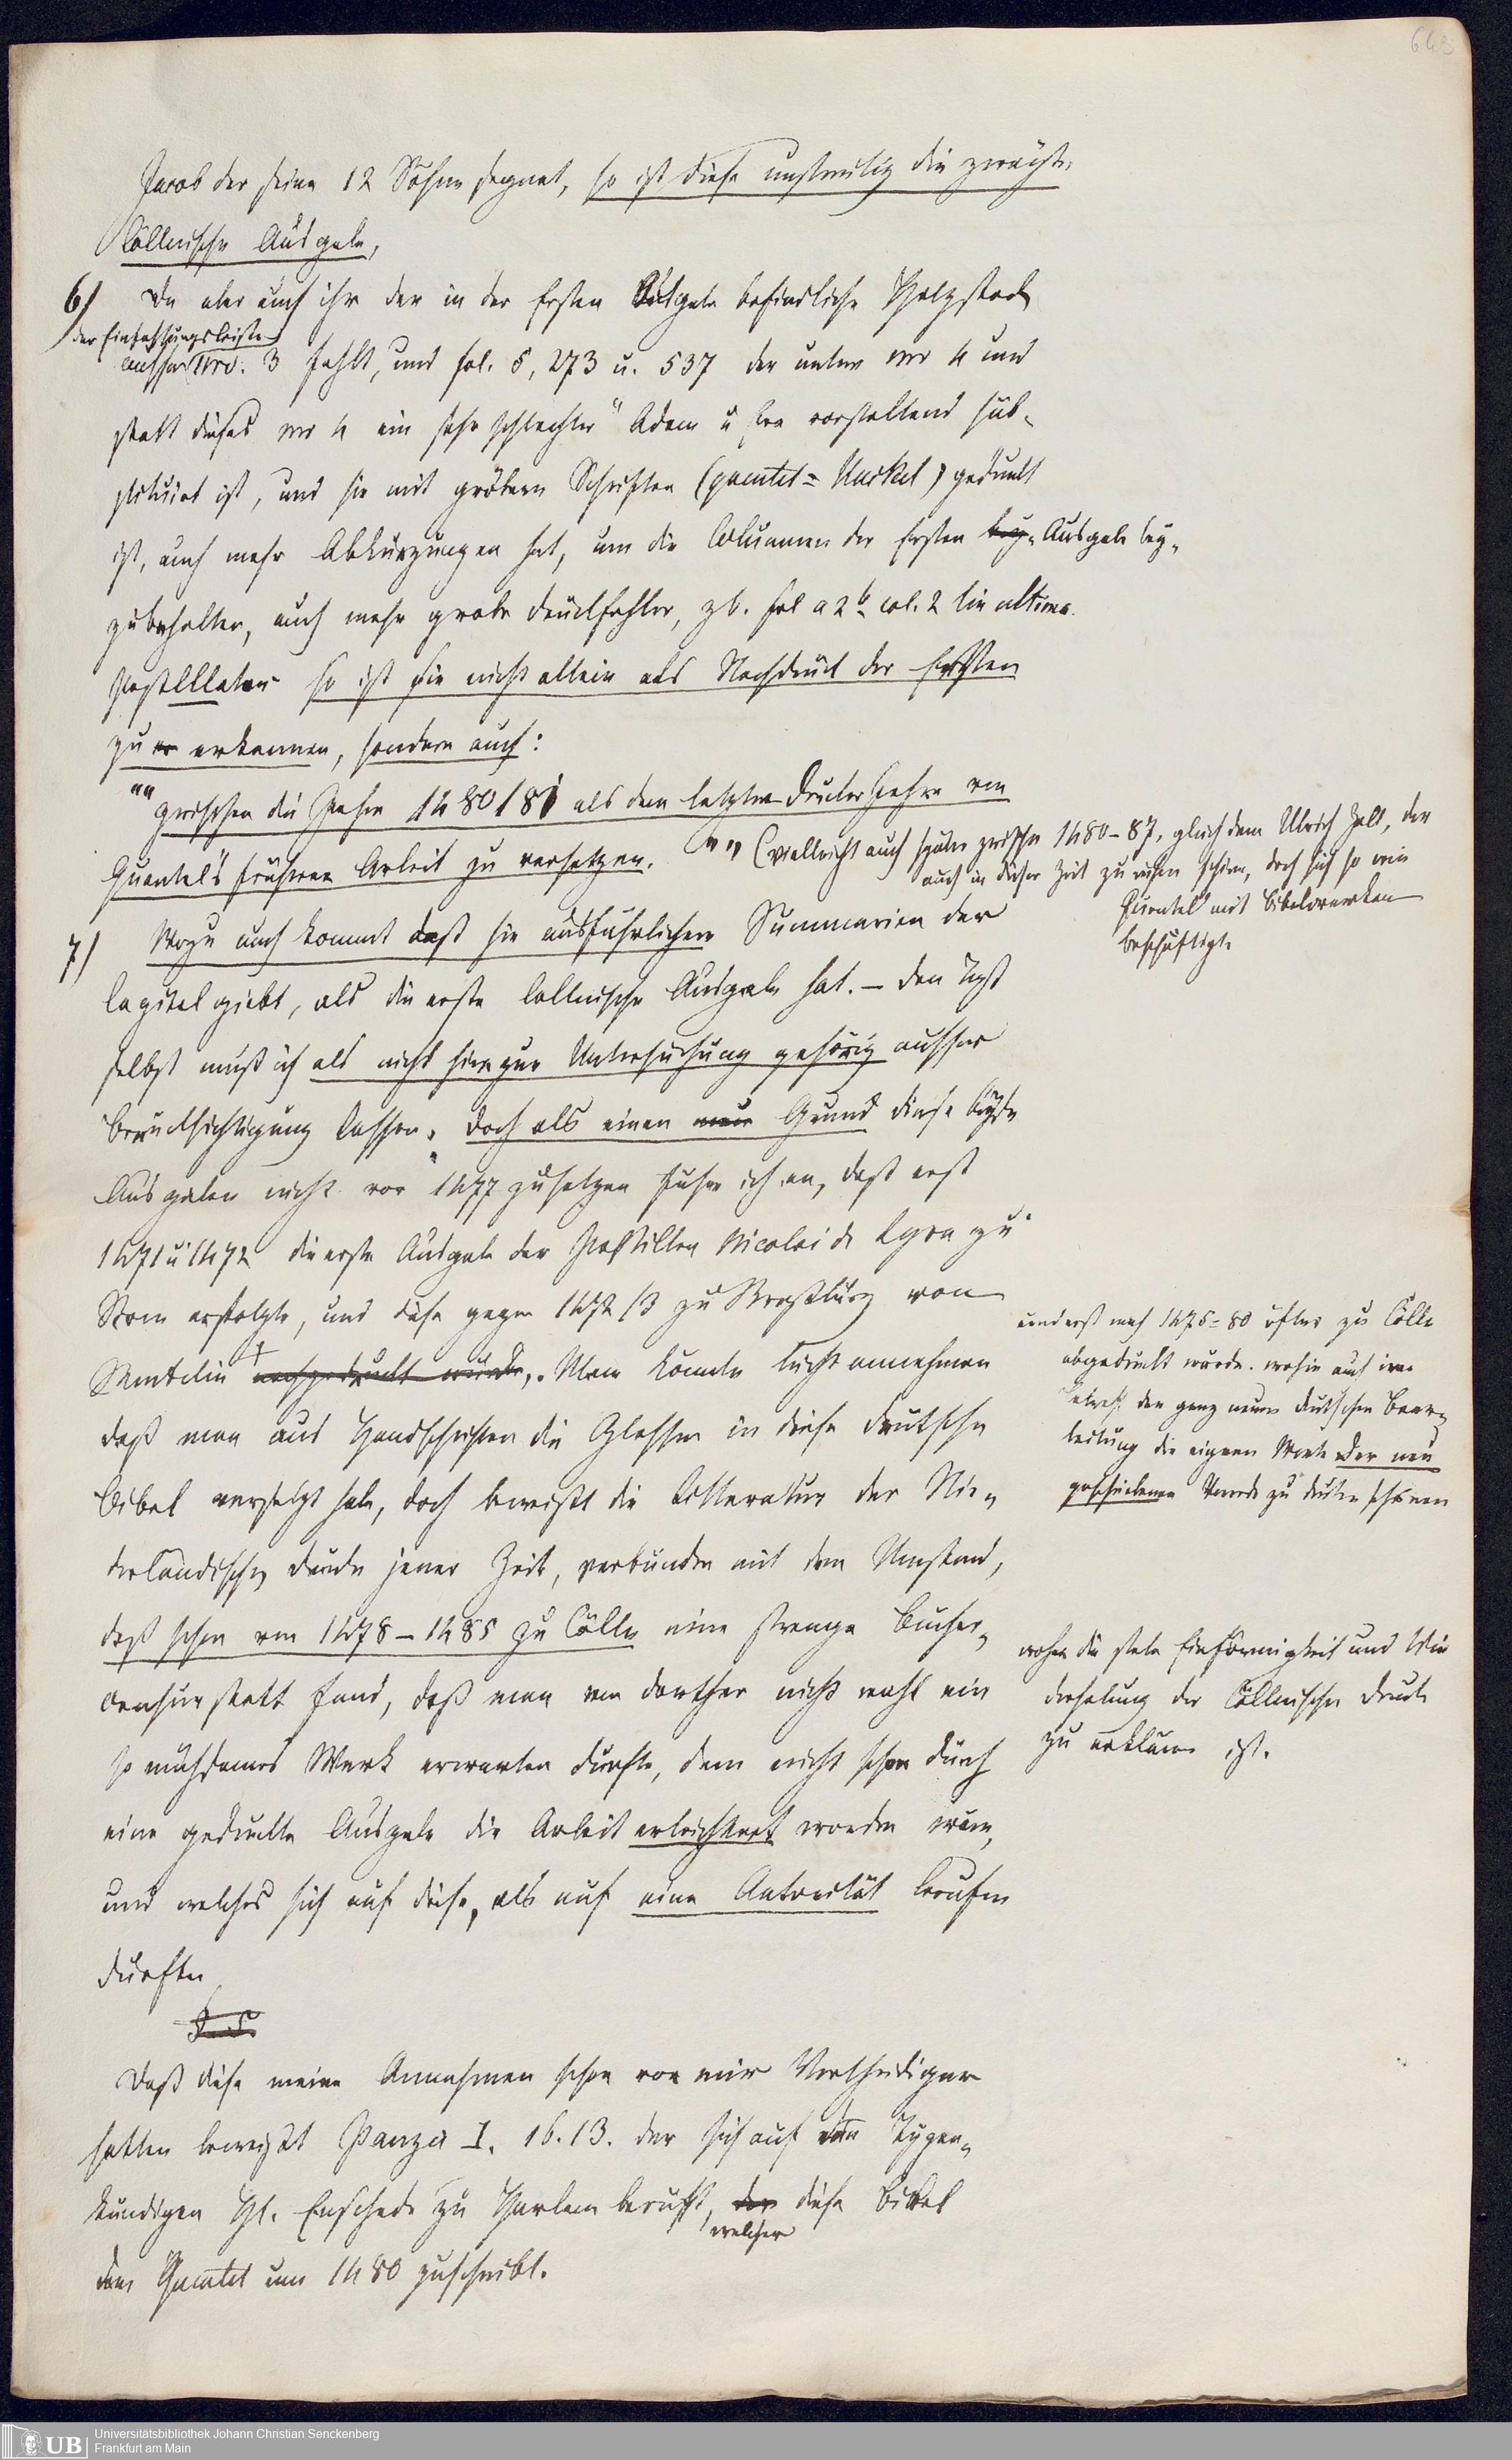 643
Jacob der seine 12 Söhne segnet, so ist diese unstreitig die zweyte
Cöllnische Ausgabe,
6) Da aber auch ihr der in der Ersten Ausgabe befindliche Holzstock
der Einfassungsleiste
ausser Nro. 3 fehlt, und fol. 5, 273 u. 537 der unter nro 4 und
statt dieses nro 4 ein sehr schlechter Adam u Eva vorstellend sub-
stituiret ist, und sie mit gröbern Schriften (quentel= Unckel) gedruckt
ist, auch mehr Abkürzungen hat, um die Columnen der Ersten Ausgabe bey-
zubehalten, auch mehr grobe Druckfehler, zb. fol a 2b col. 2 lin ultima.
postLLLaten so ist sie nicht allein als Nachdruck der Ersten
zu erkennen, sondern auch:
"" zwischen die Jahre 1480/81 als den letzten Druckerjahren von
Quentel's früherer Arbeit zu versetzen. "" (vielleicht auch später zwischen 1480-87, gleich dem Ulrich Zell, der
auch in dieser Zeit zu ruhen schien, doch sich so wie
Quentel mit Bibelwerken
beschäftigte
7) Wozu auch kommt daß sie ausführlichere Summarien der
Capitel giebt, als die erste Collnische Ausgabe hat. – Den Text
selbst muß ich als nicht hier zur Untersuchung gehörig ausser
Berücksichtigung lassen, doch als einen Grund diese beyde
Ausgaben nicht vor 1477 zu setzen führe ich an, daß erst
1471 u 1472 die erste Ausgabe der Postillen Nicolai de Lyra zu
Rom erfolgte, und diese gegen 1472/3 zu Straßburg von
Mentelin nachgedruckt wurde, Man könnte leicht annehmen
und erst nach 1475=80 öfter zu Cölln
abgedruckt wurde. wohin auch
der ganz neuen deutschen Bear-
beitung die eignen Worte der neu
Vorrede zu deuten scheinen
daß man aus Handschriften die Glossen in diese deutsche
Bibel versetzt habe, doch beweißt die Litteratur der Nie-
derländischen Drucke jener Zeit, verbunden mit dem Umstand,
daß schon von 1478-1485 zu Cölln eine strenge Bücher-
censur statt fand, daß man von dorther nicht wohl ein
woher die stete Einförmigkeit und Wie
derholung der Cöllnischen Drucke
zu erklären ist.
so mühsames Werk erwarten durfte, dem nicht schon durch
eine gedruckte Ausgabe die Arbeit erleichtert worden wäre,
und welches sich auf diese, als auf eine Autorität berufen
durfte
§. 5.
Daß diese meine Annahmen schon vor mir Vertheidiger
hatten beweißt Panzer I. 16. 13. der sich auf den Typen-
kundigen H. Enschede zu Harlem beruft, der diese Bibel
welcher
dem Quentel um 1480 zuschreibt.
UB Universitätsbibliothek Johann Christian Senckenberg
Frankfurt am Main